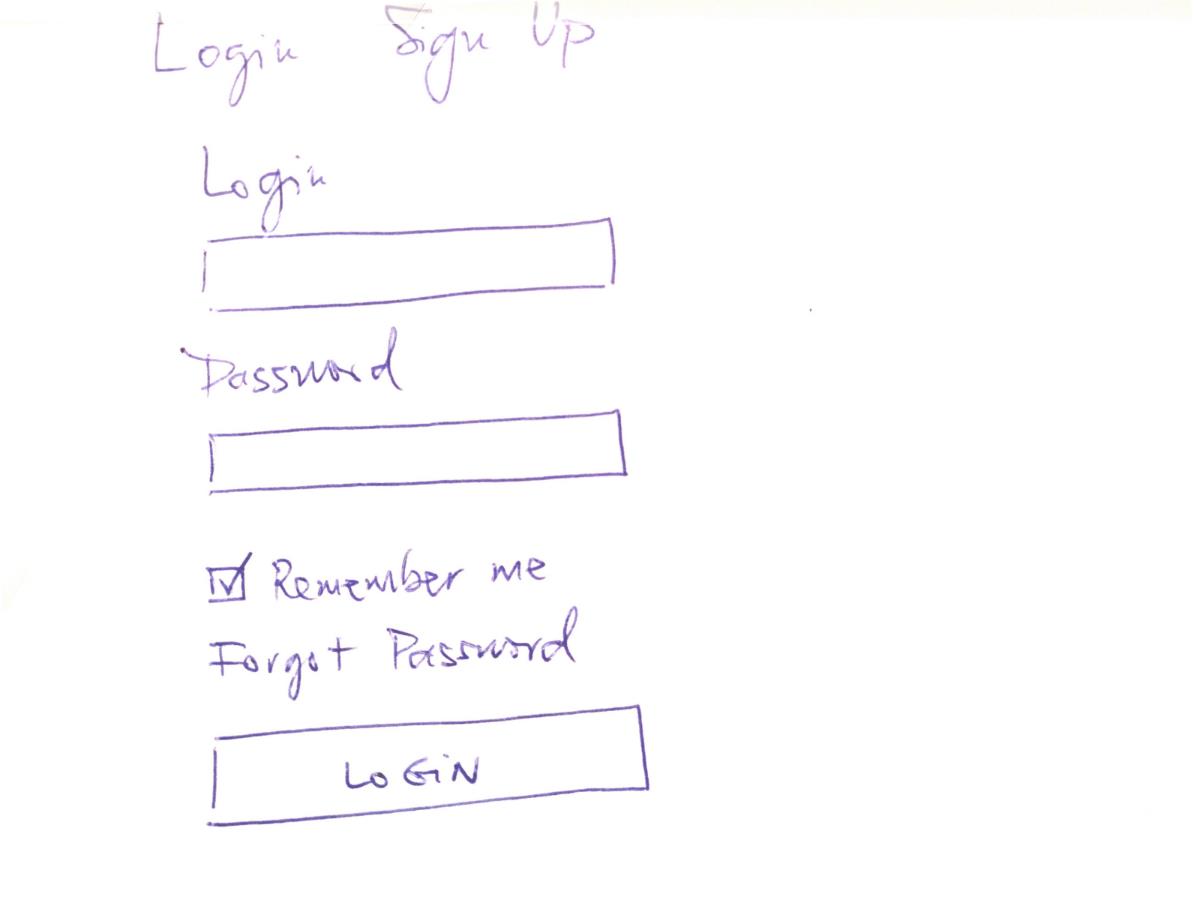 Login Sign Up
Login
Password
Remember me
Forgot Password
LOGiN